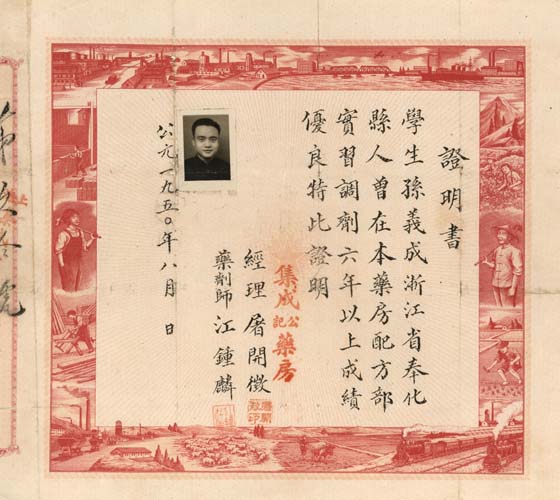 證明書
學生孫義成浙江省奉化
縣人曾在本藥房配方部
實習調劑六年以上成績
優良特此證明
集成公記藥房
經理 屠開徵
藥劑師 江鍾麟
公元一九五〇年八月 日